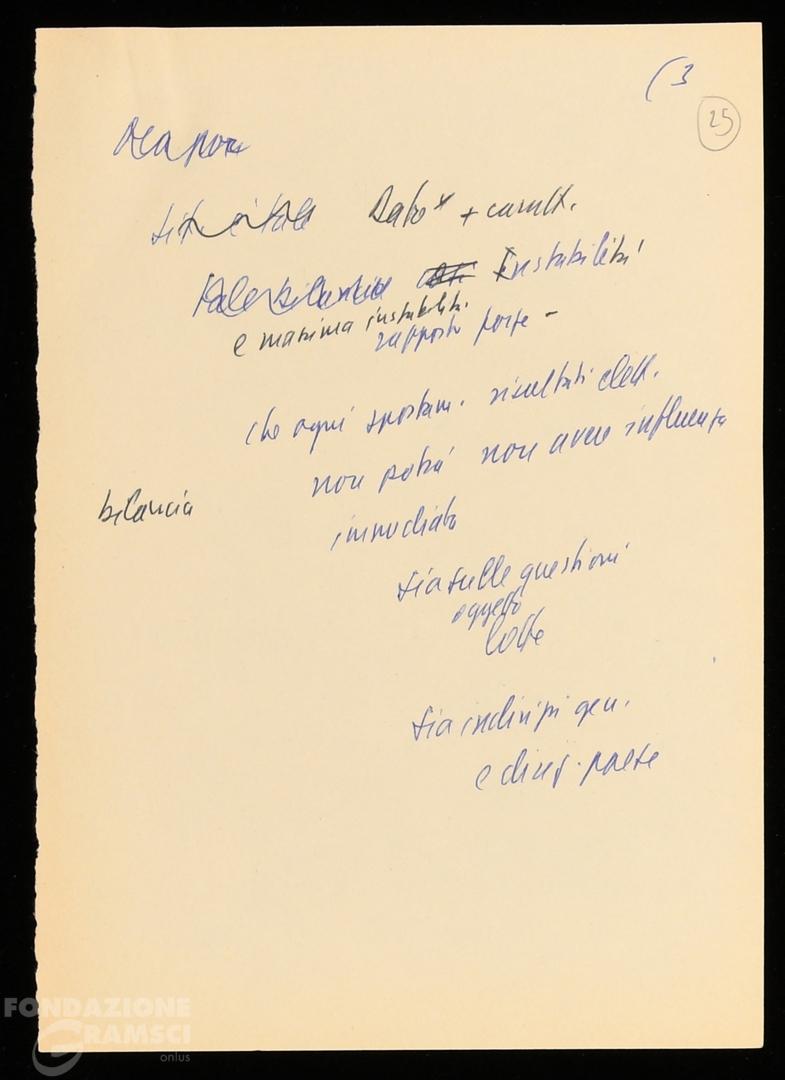 (3
25
Ora poi
sit. è tale Dato + caratt.
tale bilancia instabilità
e massima instabilità
rapporti forze -
che ogni spostam. risultati elett.
non potrà non avere influenza
bilancia
immediata
sia sulle questioni
oggetto
lotte
sia indirizzi gen.
e direz. paese
FONDAZIONE
GRAMSCI
onlus